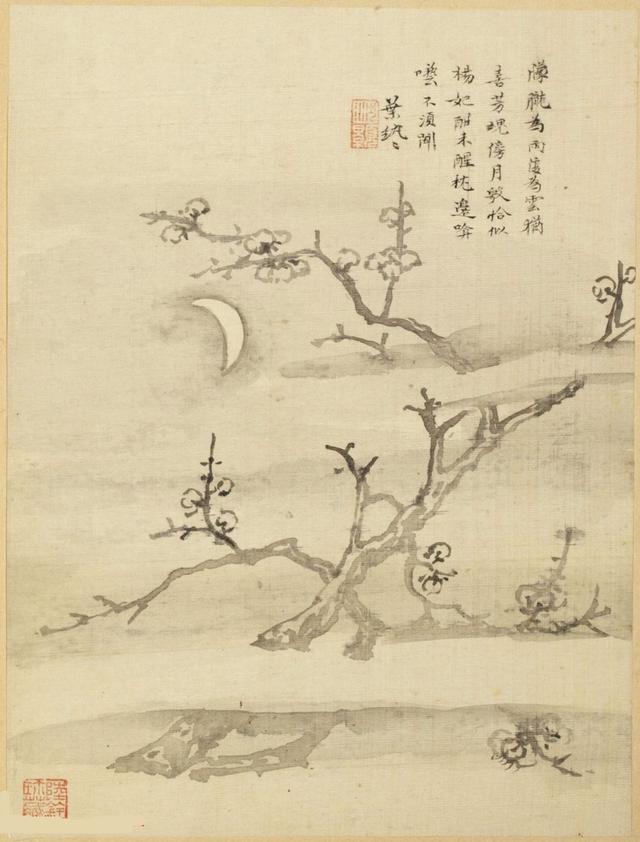 朦朧為雨復為雲猶
喜芳魂傍月恰似
楊妃酣未醒枕邊啽
囈不須聞
葉紈〻